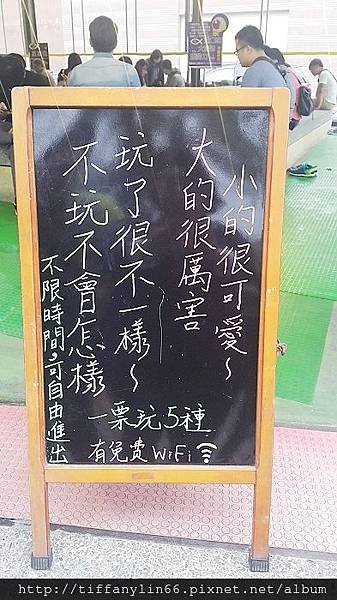 小的很可愛~
大的很厲害
玩了很不一樣~
不玩不會怎樣
不限時間,可自由進出
一票玩5種
有免費WiFi
http://tiffanylin66.pixnet.net/album